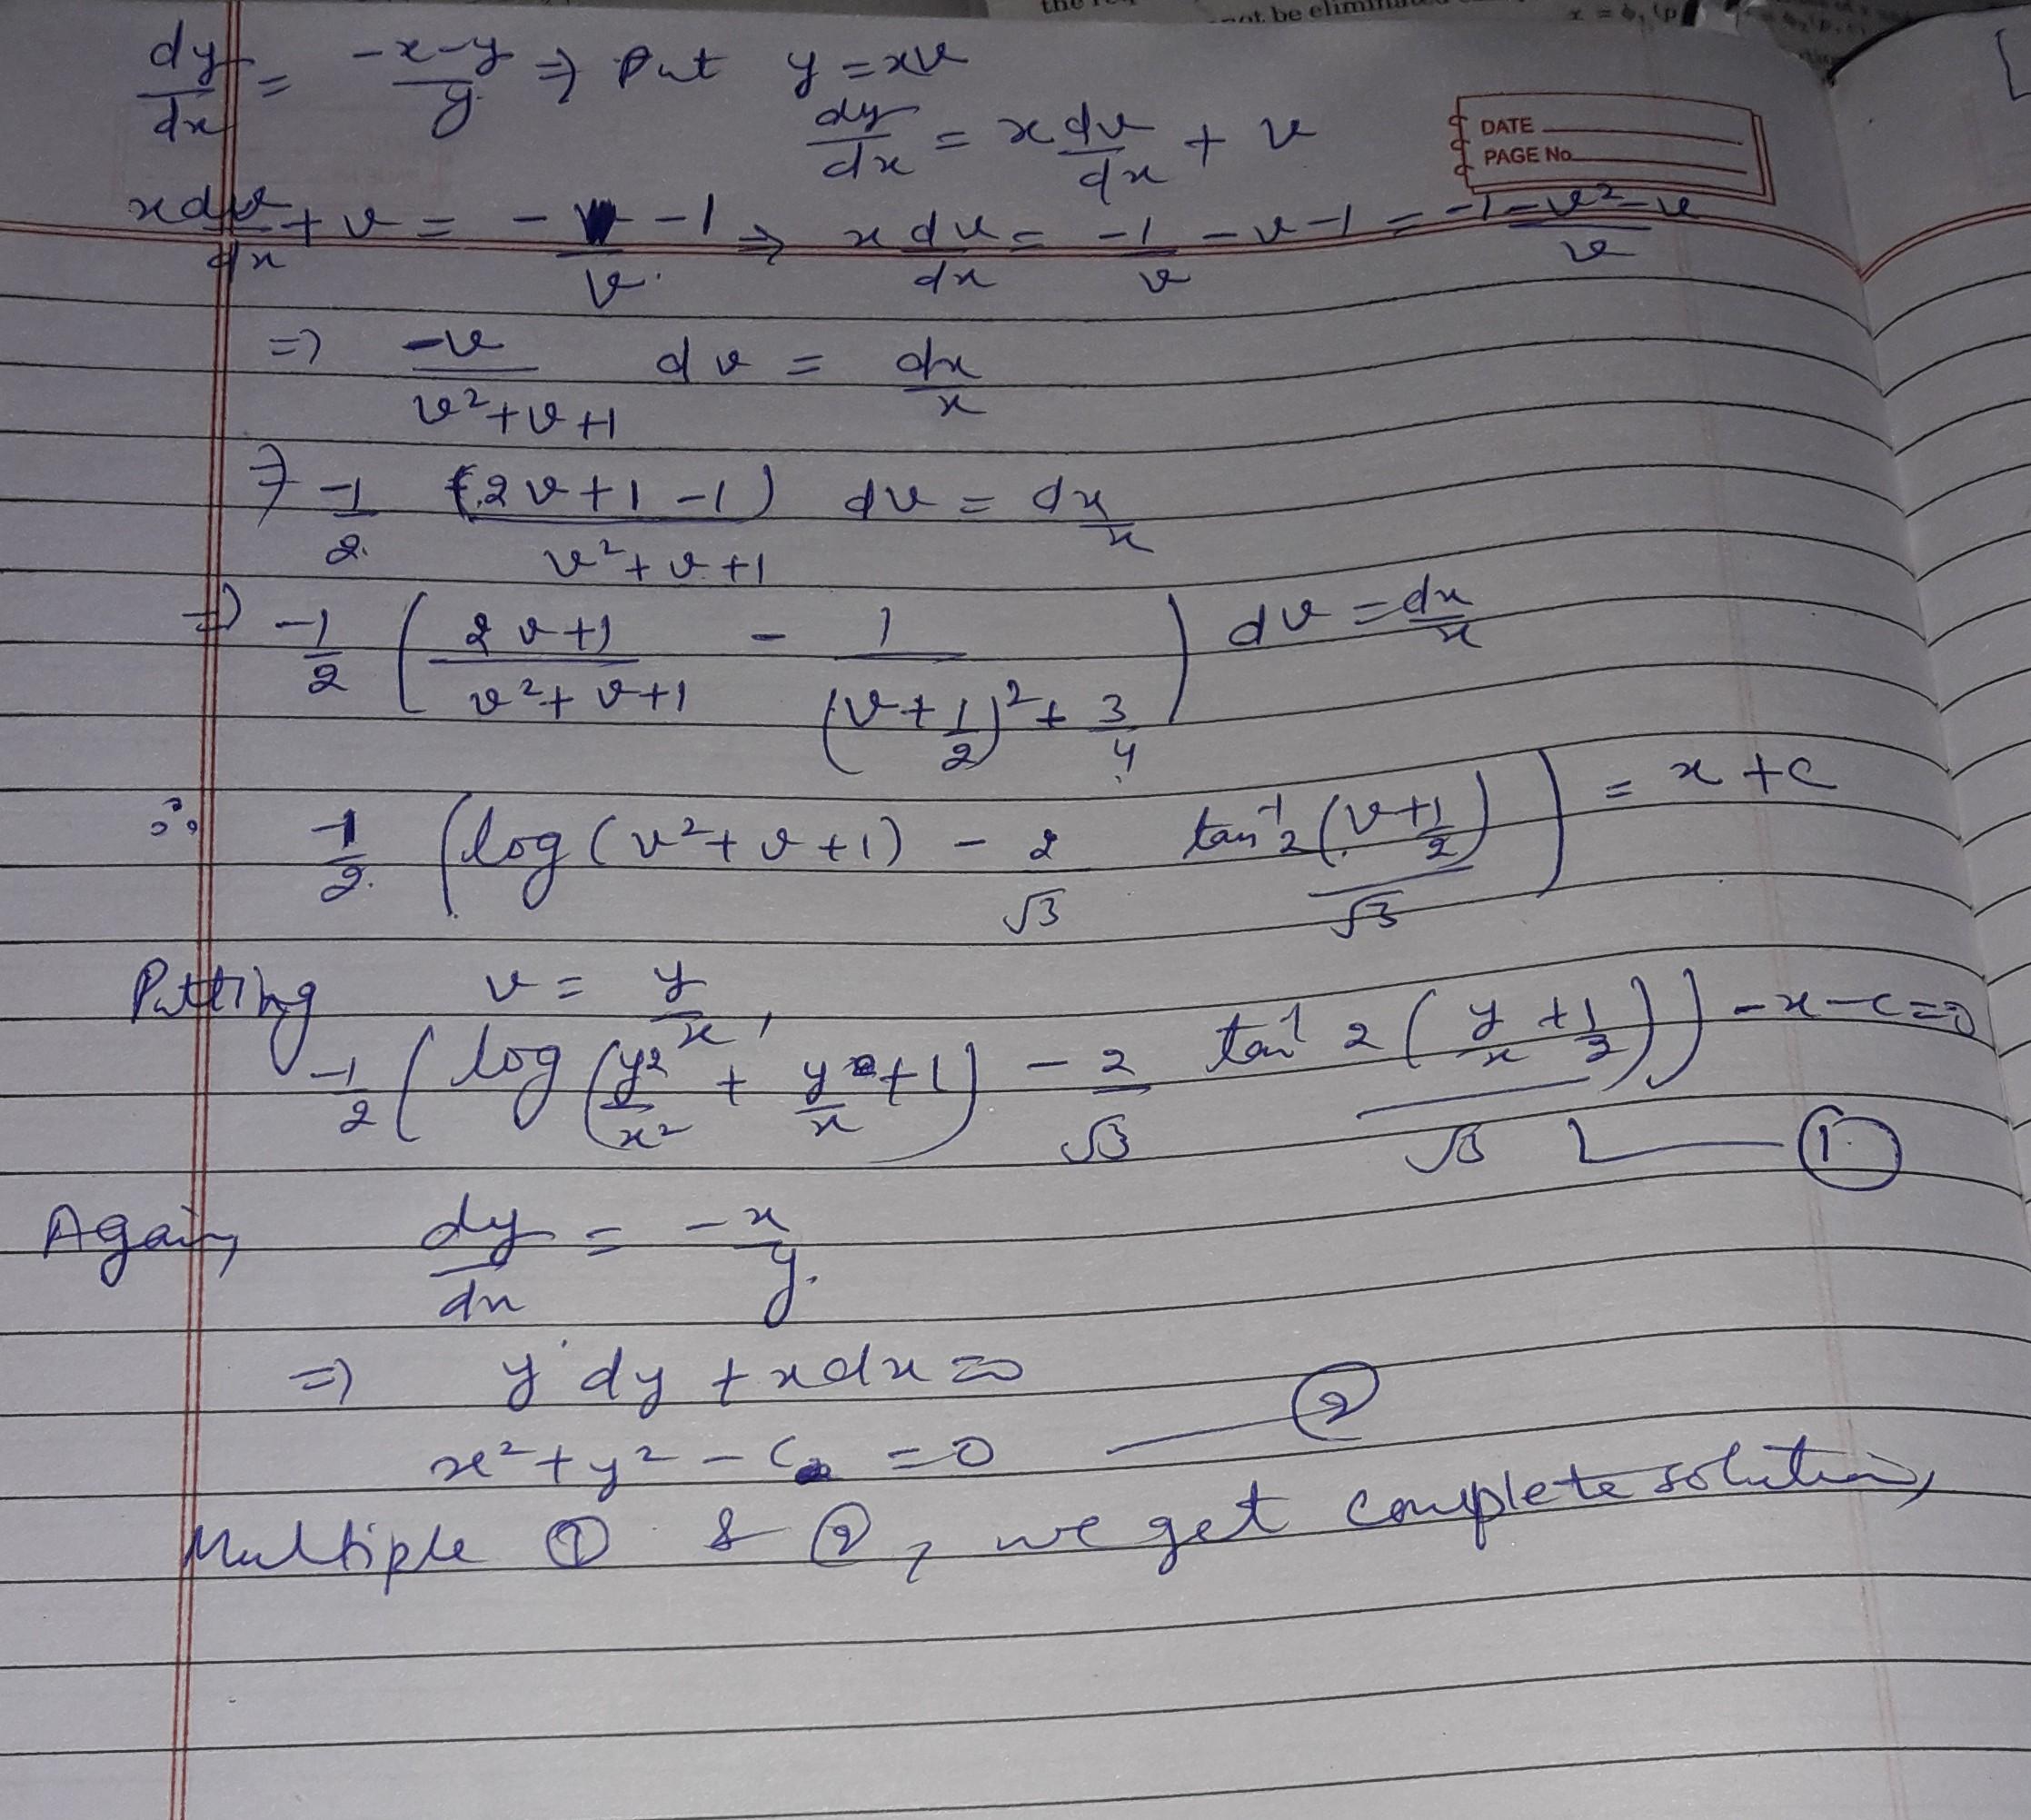 dy/dx = (-x-y)/y ⇒ Put y = xv
dy/dx = x dv/dx + v
DATE
PAGE No.
x dv/dx + v = -1/v - 1 ⇒ x dv/dx = -1/v - v - 1 = (-1 - v² - v)/v
⇒ -v/(v²+v+1) dv = dx/x
⇒ -1/2 (2v+1-1)/(v²+v+1) dv = dx/x
⇒ -1/2 ( (2v+1)/(v²+v+1) - 1/((v+1/2)²+3/4) ) dv = dx/x
∴ -1/2 ( log (v²+v+1) - 2/√3 tan⁻¹ 2(v+1/2)/√3 ) = x + c
Putting v = y/x,
-1/2 ( log (y²/x² + y/x +1) - 2/√3 tan⁻¹ 2(y/x + 1/2)/√3 ) - x - c = 0
①
Again, dy/dx = -x/y.
⇒ y dy + x dx = 0
x² + y² - c = 0 — ②
Multiple ① & ②, we get complete solution,